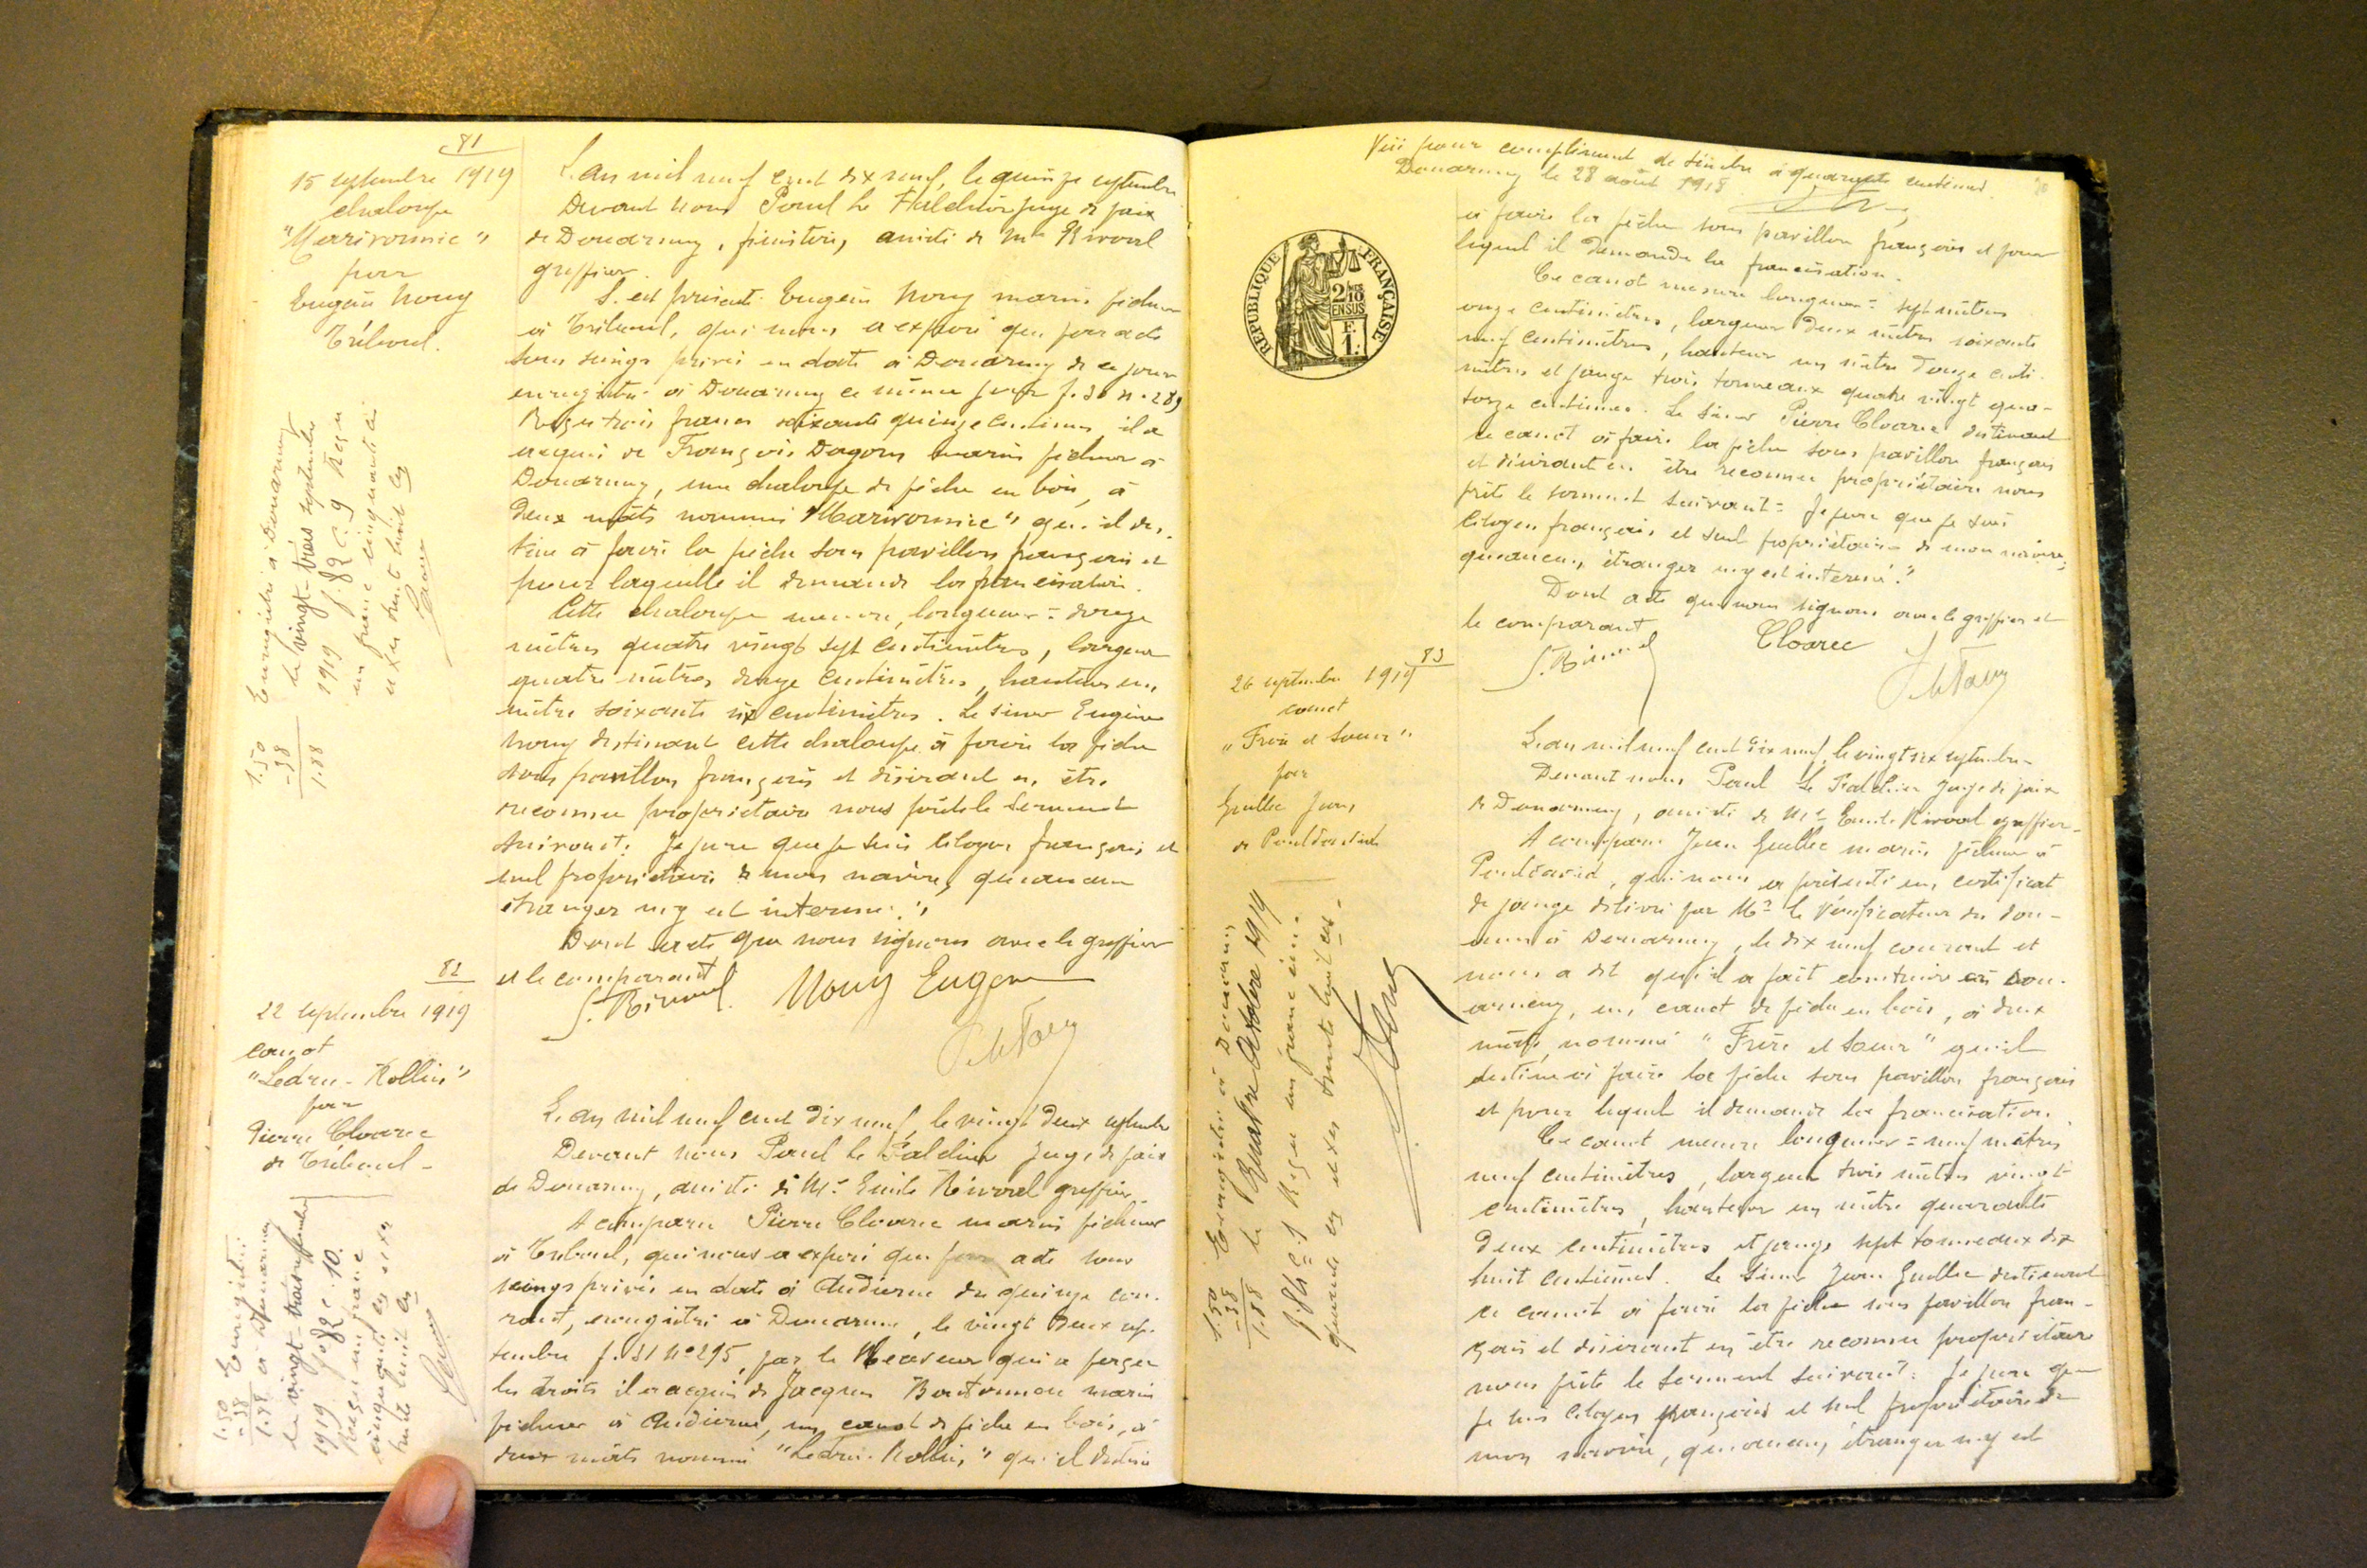 81
15 septembre 1919
chaloupe
"Marivonnic"
par
Eugène Nouy
Tréboul.
Enregistré à Douarnenez
le vingt-trois septembre
1919 f. 82 c. 9 Reçu
un franc cinquante cs
et xes trente huit cs
1.50
-38
1.88
L'an mil neuf cent dix neuf, le quinze septembre
Devant nous Paul Le juge de paix
de Douarnenez, finistère, assisté de Me Rivoal
greffier.
S'est présenté Eugène Nouy marin pêcheur
à Tréboul, qui nous a exposé que par acte
sous seings privés en date à Douarnenez de ce jour
enregistré à Douarnenez ce même jour f. 30 n. 289
Reçu trois francs soixante quinze centimes il a
acquis de François Dagorn marin pêcheur à
Douarnenez, une chaloupe de pêche en bois, à
deux mâts nommée "Marivonnic" qu'il des-
tine à faire la pêche sous pavillon français et
pour laquelle il demande la francisation.
Cette chaloupe mesure, longueur = douze
mètres quatre vingt sept centimètres, largeur
quatre mètres douze centimètres, hauteur un
mètre soixante six centimètres. Le sieur Eugène
Nouy destinant cette chaloupe à faire la pêche
sous pavillon français et désirant en être
reconnu propriétaire nous prête le serment
suivant: Je jure que je suis citoyen français et
seul propriétaire de mon navire, qu'aucun
étranger n'y est intéressé."
Dont acte que nous signons avec le greffier
et le comparant
Nouy Eugène
82
22 septembre 1919
canot
"Ledru-Rollin"
par
Pierre Cloarec
de Tréboul-
1.50
-38
1.88
Enregistré
à Douarnenez
le vingt-trois septembre
1919 f° 82 c. 10.
Reçu un franc
cinquante cs et xes
trente huit cs
L'an mil neuf cent dix neuf, le vingt deux septembre
Devant nous Paul Le juge de paix
de Douarnenez, assisté de Me Emile Rivoal greffier.
A comparu Pierre Cloarec marin pêcheur
à Tréboul, qui nous a exposé que par acte sous
seings privés en date à Audierne du quinze cou-
rant, enregistré à Douarnenez, le vingt deux sep-
tembre f. 31 n° 295, par le Receveur qui a perçu
les droits il a acquis de Jacques marin
pêcheur à Audierne, un canot de pêche en bois, à
deux mâts nommé "Ledru-Rollin," qu'il destine
Visé pour complément de timbre à quarante centimes.
Douarnenez le 28 août 1918
RÉPUBLIQUE FRANÇAISE
2/10 EN SUS
F. 1.
à faire la pêche sous pavillon français et pour
lequel il demande la francisation.
Ce canot mesure longueur = sept mètres
onze centimètres, largeur deux mètres soixante
neuf centimètres, hauteur un mètre douze centi-
mètres et jauge trois tonneaux quatre vingt qua-
torze centièmes. Le sieur Pierre Cloarec destinant
ce canot à faire la pêche sous pavillon français
et désirant en être reconnu propriétaire nous
prête le serment suivant = Je jure que je suis
citoyen français et seul propriétaire de mon navire,
qu'aucun étranger n'y est intéressé."
Dont acte que nous signons avec le greffier et
le comparant
Cloarec
83
26 septembre 1919
canot
"Frère et Soeur"
par
Guillec Jean
de Pouldavid
1.50
-38
1.88
Enregistré à Douarnenez
le Quatre Octobre 1919
f. 84 c. 1 Reçu un franc cin-
quante cs et xes trente huit cs.
L'an mil neuf cent dix neuf, le vingt six septembre
Devant nous Paul Le juge de paix
de Douarnenez, assisté de Me Emile Rivoal greffier-
A comparu Jean Guillec marin pêcheur à
Pouldavid, qui nous a présenté un certificat
de jauge délivré par Mr le Vérificateur des dou-
anes à Douarnenez, le dix neuf courant et
nous a dit qu'il a fait construire à Dou-
arnenez, un canot de pêche en bois, à deux
mâts, nommé "Frère et Soeur" qu'il
destine à faire la pêche sous pavillon français
et pour lequel il demande la francisation.
Ce canot mesure longueur = neuf mètres
neuf centimètres, largeur trois mètres vingt
centimètres, hauteur un mètre quarante
deux centimètres et jauge sept tonneaux dix
huit centièmes. Le sieur Jean Guillec destinant
ce canot à faire la pêche sous pavillon fran-
çais et désirant en être reconnu propriétaire
nous prête le serment suivant: Je jure que
je suis citoyen français et seul propriétaire de
mon navire, qu'aucun étranger n'y est